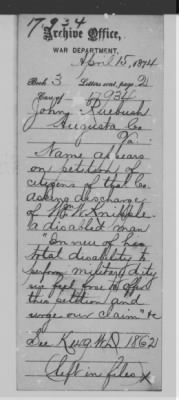 7934
Archive Office,
WAR DEPARTMENT,
April 15, 1874
Book 3 Letters rec'd, page 2
Case of 7934
John Ruebush
Augusta Co
Va.
Name appears
on petition of
citizens of that Co.
asking discharge
of Wm W Knipple
a disabled man
"In view of his
total disability to
perform military duty
we feel free to offer
this petition and
urge our claim" &c
See K W.D. 1862
(left in files)